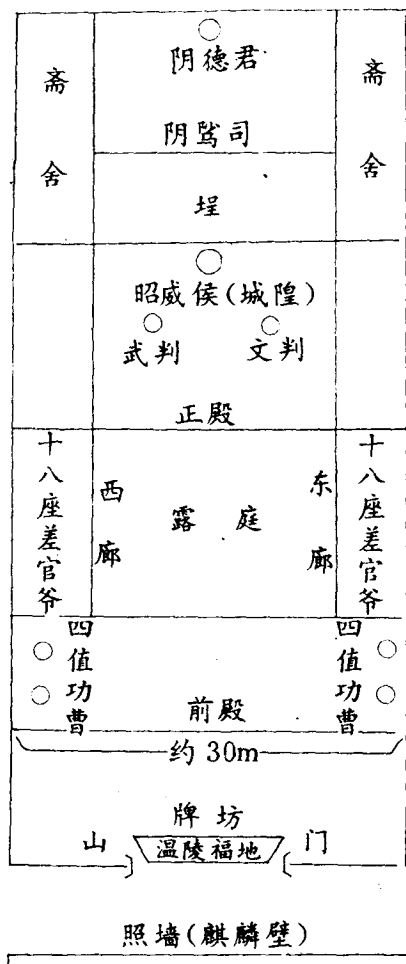 斋舍
阴德君
阴骘司
斋舍
埕
昭威侯(城隍)
武判
文判
正殿
十八座差官爷
西廊
露庭
东廊
十八座差官爷
四值功曹
前殿
四值功曹
约30m
牌坊
山
温陵福地
门
照墙(麒麟壁)